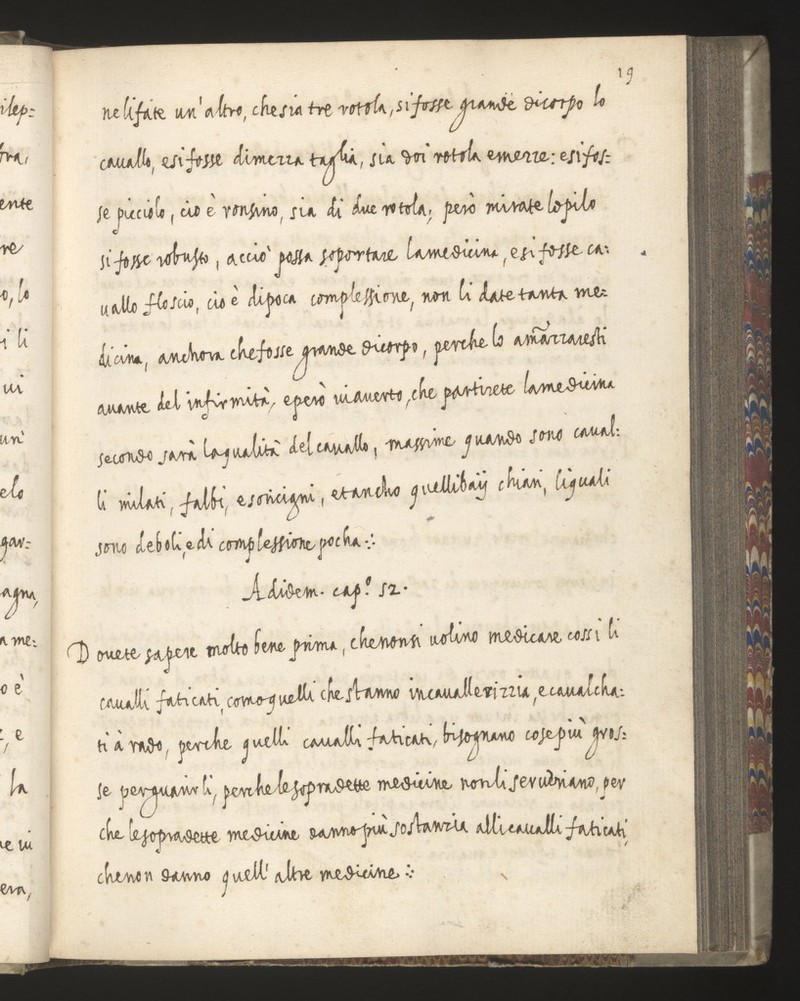 19
ilep=
fra,
ente
re
o, lo
i li
ui
un'
elo
gar=
agna,
a me:
o è
, e
la
ne ui
era,
ne li fate un'altro, che sia tre rotola, si fosse grande di corpo lo
cauallo, e si fosse di mezza taglia, sia doi rotola e mezze: e si fos=
se picciolo, cio è ronsino, sia di due rotola; però mirate lo pilo
si fosse robusto, acciò possa soportare la medicina, e si fosse ca:
uallo floscio, cio è di poca complessione, non li date tanta me=
dicina, anchora che fosse grande di corpo, perche lo amazzaresti
auante del infirmità, e però ui auerto, che partirete la medicina
secondo sarà la qualità del cauallo, massime quando sono caual:
li milati, falbi, e soricigni, et ancho quelli baij chiari, li quali
sono deboli, e di complessione pocha
Ad idem. cap.º 52.
Douete sapere molto bene prima, che non si uolino medicare cossi li
caualli faticati, como quelli che stanno in cauallerizzia, e caualcha:
ti à rado, perche quelli caualli faticati, bisognano cose più gros=
se per guarirli, perche le sopradette medicine non li seruiriano, per
che le sopradette medicine danno più sostanzia alli caualli faticati,
che non danno quell' altre medicine